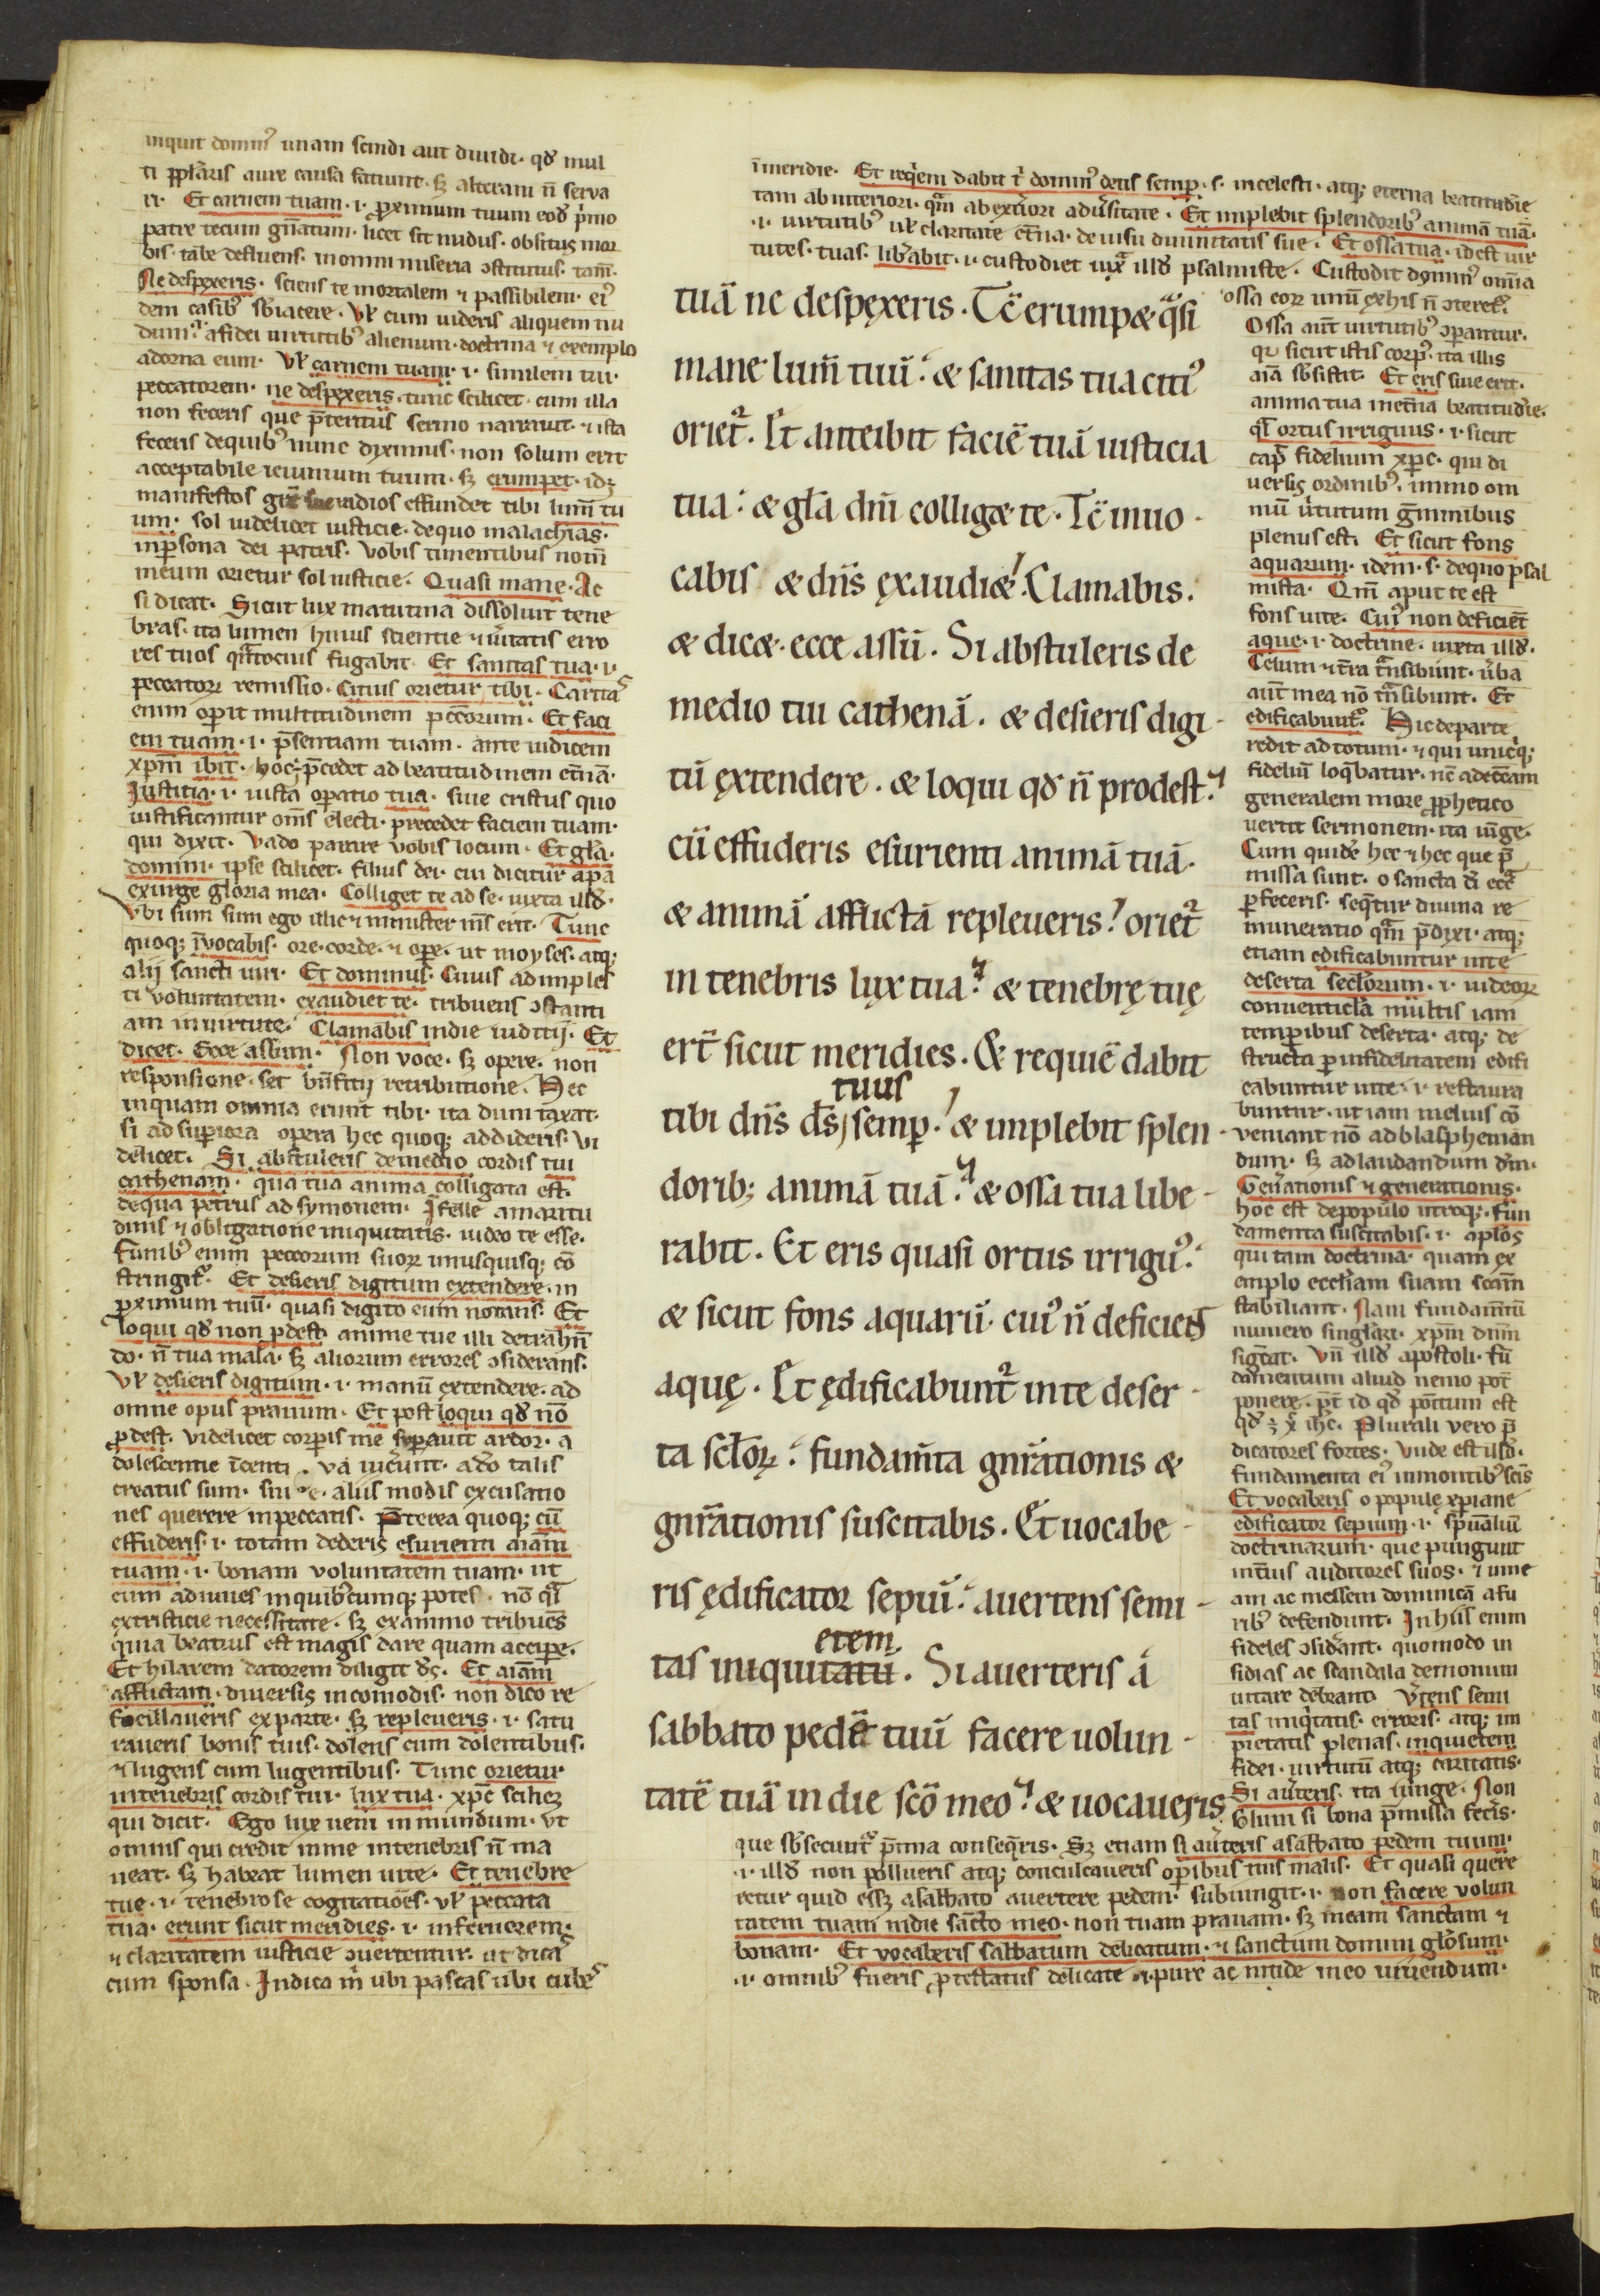 inquit domin᷒ unam scindi aut diuidi. qđ mul
ti ꝓpľaris aure causa fatiunt. sꝫ alteram ñ serua
Et carnem tuam .i. ꝓximum tuum eođ p̾mo
patre tecum gn̄atum. licet sit nudus. obsitus mor
bis. tabe defluens. in omni miseria ↄstitutus. tam̄.
Ne despexeris. sciens te mortalem ⁊ passibilem. ei᷒
dem casib᷒ sƀiacere. Vł cum uideris aliquem nu
dum. a fidei uirtutib᷒ alienum. doctrina ⁊ exemplo
adorna eum. Vł carnem tuam .i. similem tui.
peccatorem. ne despexeris. tunc scilicet. cum illa
non feceris que p̄teritus sermo narrauit. ⁊ ista
feceris de quib᷒ nunc dyximus. non solum erit
acceptabile ieiunium tuum. sꝫ erumpet. idꝫ
manifestos radios effundet tibi lum̄ tu
um. sol uidelicet iusticie. de quo malachias.
in ꝑsona dei patris. Vobis timentibus nom̄
meum orietur sol iusticie. Quasi mane. Ac
si dicat. Sicut lux matutina dissoluit tene
bras. ita lumen huius scientie ⁊ ůitatis erro
res tuos fugabit. Et sanitas tua .i.
peccatoꝝ remissio. Citius orietur tibi. Carita᷒
enim oꝑit multitudinem pec̄corum. Et faci
em tuam .i. p̄sentiam tuam. ante iudicem
xp̄m ibit. hoc ÷ p̄cedet ad beatitudinem et̄nā.
Justitia .i. iusta oꝑatio tua. siue cristus quo
iustificantur om̄s electi. precedet faciem tuam.
qui dyxit. Vado parare vobis locum. Et gła
domini. ipse scilicet. filius dei. cui dicitur a pr̄e
exurge gloria mea. Colliget te ad se. iuxta illđ.
Vbi sum sum ego illic ⁊ minister m̄s erit. Tunc
quoqꝫ īvocabis. ore. corde. ⁊ oꝑe. ut moyses. atqꝫ
alij sancti uiri. Et dominus. Cuius adimples
ti voluntatem. exaudiet te. tribuens ↄstanti
am in uirtute. Clamabis in die iuditij. Et
dicet. Ecce assum. Non voce. sꝫ opere. non
responsione. set bn̄fitij retributione. Hec
inquam omnia erunt tibi. ita dum taxat.
si ad suꝑiora opera hec quoqꝫ addideris. vi
delicet. Si abstuleris de medio cordis tui
cathenam. qua tua anima colligata est.
de qua petrus ad symonem. I felle amaritu
dinis ⁊ obligatione iniquitatis. uideo te esse.
Funib᷒ enim peccorum suoꝝ unusquisqꝫ cō
stringit᷑. Et desieris digitum extendere. in
ꝓximum tuū. quasi digito eum notans. Et
loqui qđ non ꝓdest anime tue illi detrahen̄
do. ñ tua mala. sꝫ aliorum errores ↄsiderans.
Vł desieris digitum .i. manū extendere. ad
omne opus prauum. Et post loqui qđ nō
ꝓdest. Videlicet corꝑis me syꝑauit ardor. a
dolescentie īcenti. va iuc̾unt. ađo talis
creatus sum. siue. aliis modis excusatio
nes querere in peccatis. P̄terea quoqꝫ cū
effuderis .i. totam dederis esurienti aīam
tuam .i. bonam voluntatem tuam. ut
eum adiuues in quib᷒cumqꝫ potes. nō qͣsi
ex tristicie necessitate. sꝫ ex animo tribuēs
quia beatius est magis dare quam accipe.
Et hilarem datorem diligit đs. Et aīam
afflictam. diuersis incomodis. non dico re
focillaueris ex parte. sꝫ repleueris .i. satu
raueris bonis tuis. dolens cum dolentibus.
⁊ lugens cum lugentibus. Tunc orietur
in tenebris cordis tui. lux tua. xp̄c scilicꝫ
qui dicit. Ego lux ueni in mundum. Vt
omnis qui credit in me in tenebris ñ ma
neat. sꝫ habeat lumen uite. Et tenebre
tue .i. tenebrose cogitatiōes. vł peccata
tua. erunt sicut meridies .i. in feruorem.
⁊ claritatem iusticie ↄuertentur. ut dica᷒
cum sponsa. Indica m̾ ubi pascas ubi cube᷒
ī meridie. Et req̾em dabit t̾ domin᷒ deus semꝑ .s. in celesti. atqꝫ eterna beatitudīe
tam ab interiori. qͣm ab ext̾iori adũsitate. Et implebit splendorib᷒ animā tuā.
.i. uirtutib᷒ uł claritate et̄na. de uisu diuinitatis sue. Et ossa tua. id est uir
tutes. tuas. lib̾abit .i. custodiet iuxͣ illđ psalmiste. Custodit dn̄us om̄ia
tuā ne despęxeris. Tc̄ erumpæ qͣsi
mane lum̄ tuū. æ sanitas tua citi᷒
oriet᷑. Et anteibit faciē tuā iusticia
tua. æ gła dn̄i colligæ te. Tc̄ inuo-
cabis æ dn̄s ęxaudiæ. Clamabis.
æ dicæ. ecce assū. Si abstuleris de
medio tui cathenā. æ desieris digi-
tū ęxtendere. æ loqui qđ ñ prodest.
cū effuderis esurienti animā tuā.
æ animā afflictā repleueris. oriet᷑
in tenebris lux tua. æ tenebrę tuę
ert̄ sicut meridies. Æ requiē dabit
tuus
tibi dn̄s đs, semꝑ. æ implebit splen-
doribꝫ animā tuā. æ ossa tua libe-
rabit. Et eris quasi ortus irrigu᷒.
æ sicut fons aquarū. cui᷒ ñ deficient
aquę. Et ędificabunt᷑ in te deser-
ta scłoꝝ. fundam̄ta gn̄rationis æ
gn̄rationis suscitabis. Et uocabe-
ris ędificator sepiū. auertens semi-
etem
tas iniquitatū. Si auerteris a
sabbato pedē tuū facere uolun-
tatē tuā in die scō meo. æ uocaueris
ossa eoꝝ unū ex his ñ ↄteret᷑.
Ossa aut̄ uirtutib᷒ ↄꝑantur.
qr̾ sicut istis corp᷒. ita illis
aīa sƀsistit. Et eris siue erit.
anima tua in et̄na beatitudīe.
qͣsi ortus irriguus .i. sicut
cap̄ fidelium xp̄c. qui di
uersis ordinib᷒. immo om
niū ů̾tutum ḡminibus
plenus est. Et sicut fons
aquarum. idem .s. de quo psal
mista. Qm̄ aput te est
fons uite. Cui᷒ non deficiēt
aque .i. doctrine. iuxta illđ.
Celum ⁊ t̄ra tͣnsibunt. ůba
aut̄ mea nō tͣnsibunt. Et
edificabunt᷑. Hic de parte
redit ad totum. ⁊ qui unicͥqꝫ
fideliū loq̾batur. nc̄ ad ecc̄am
generalem more ꝓphetico
uertit sermonem. ita iūge.
Cum quidē hec ⁊ hec que p̄
missa sunt. o sancta đi ecc̄a
ꝑfeceris. seq̾tur diuina re
muneratio qͣm p̄dyxi. atqꝫ
etiam edificabuntur in te
deserta sectorum .i. iudeoꝝ
conuenticľa multis iam
temꝑibus deserta. atqꝫ de
structa ꝑ infidelitatem edifi
cabuntur in te .i. restaura
buntur. ut iam melius cō
ueniant nō ad blaspheman
dum. sꝫ ad laudandum đm.
Gen̄ationis ⁊ generationis.
hoc est de populo utroqꝫ. fun
damenta suscitabis .i. apľos
qui tam doctrina. quam ex
emplo eccľiam suam scām
stabiliant. Nam fundam̄tū
numero singľari. xp̄m dn̄m
sig̾tat. Vn̄ illđ apostoli. fū
damentum aliud nemo pot̄
ponere. p̄t id qđ po̾itum est
qđ ÷ x̄ ih̄c. Plurali vero p̄
dicatores fortes. Vnde est illđ.
fundamenta ei᷒ in montib᷒ scīs
Et vocaberis o popule xp̄iane
edificator sepium .i. sp̄ualiū
doctrinarum. que pungunt
int̾ius auditores suos. ⁊ uine
am ac messem dominicā a fu
rib᷒ defendunt. In hiis enim
fideles ↄsid̾ant. quomodo in
sidias ac scandala demonum
uitare debeant. V̾tens semi
tas iniq̾tatis. erroris. atqꝫ im
pietatis plenas. in quietem
fidei. uirtutū atqꝫ caritatis.
Si aũteris. ita iunge. Non
solum si bona p̄missa fec̾is.
que sƀsecunt᷑ p̄mia conseq̄ris. Sꝫ etiam si aũteris a sabbato pedem tuum.
.i. illđ non pollueris atqꝫ conculcaueris oꝑibus tuis malis. Et quasi quere
retur quid essꝫ a sabbato auertere pedem. subiungit .i. non facere volun
tatem tuam in die sācto meo. non tuam prauam. sꝫ meam sanctam ⁊
bonam. Et vocaberis sabbatum delicatum. ⁊ sanctum domini glo̾sum.
.i. omnib᷒ fueris ꝓtestatus delicate ⁊ pure ac nitide meo uiuendum.